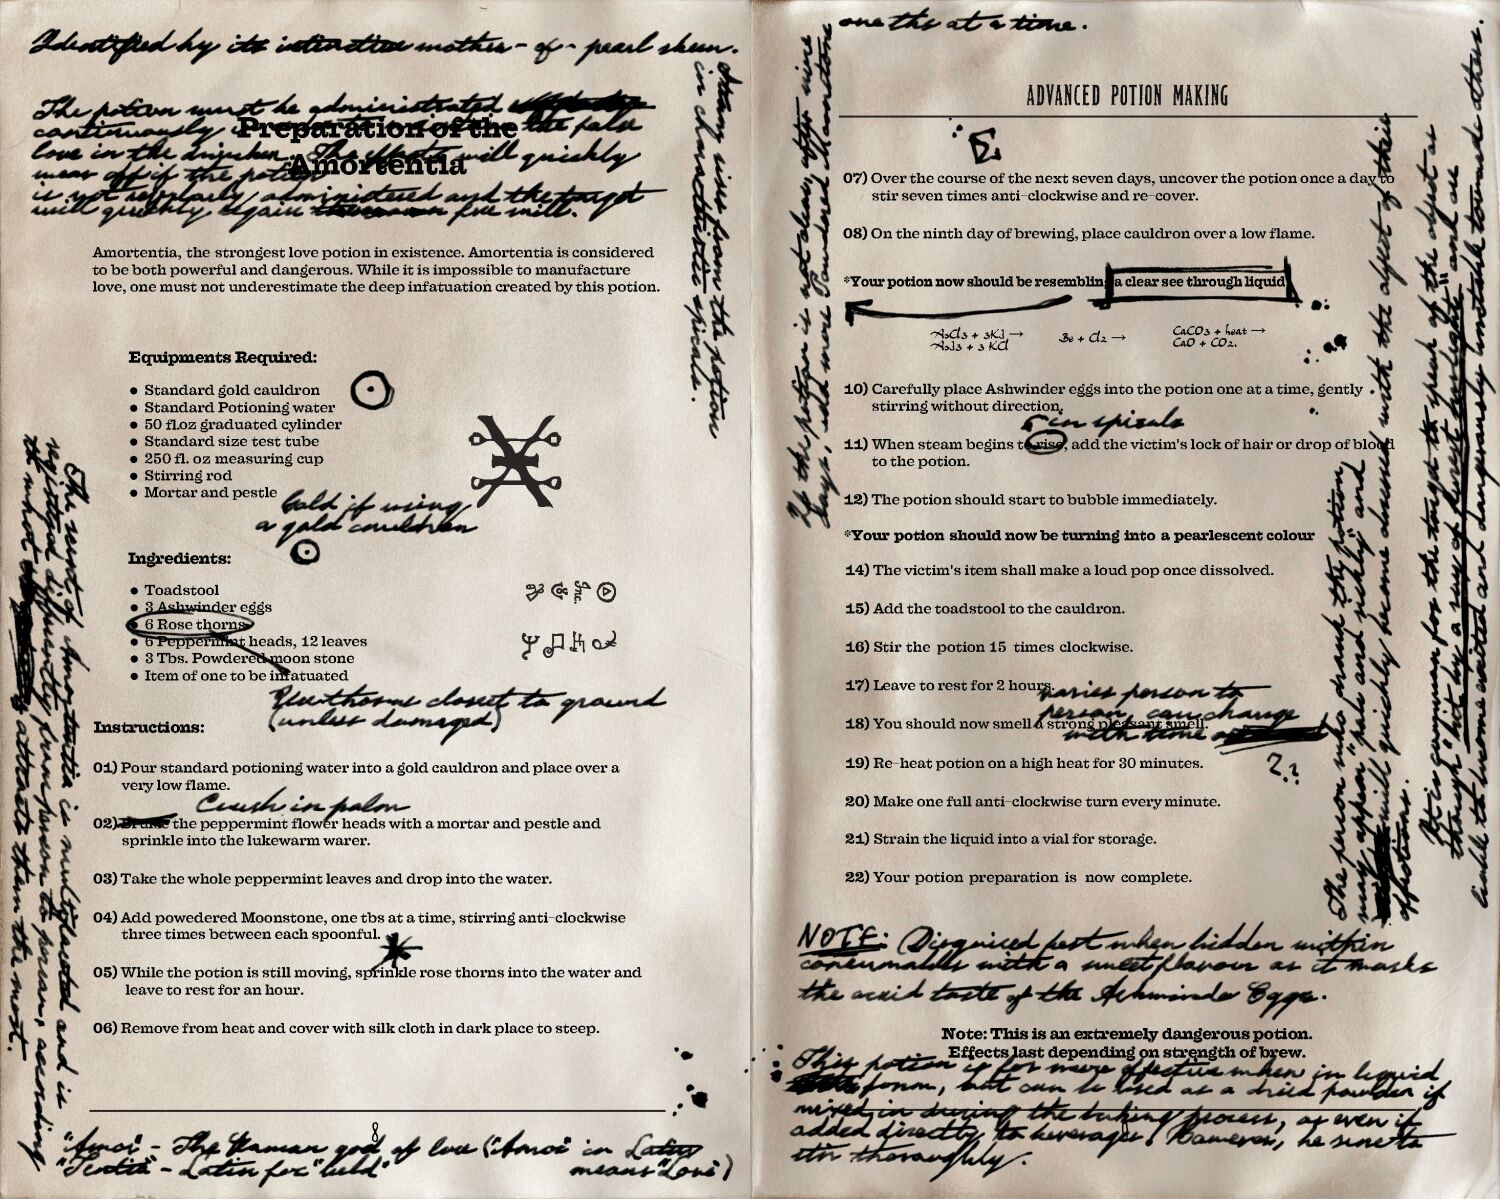 Identified by its mother-of-pearl sheen.
The potion must be administrated
continuously the false
love in the drinker. The effects will quickly
wear off if the potion
is not regularly administered and the target
will quickly regain free will.
Preparation of the
Amortentia
Steam rises from the potion
in characteristic spirals.
Amortentia, the strongest love potion in existence. Amortentia is considered
to be both powerful and dangerous. While it is impossible to manufacture
love, one must not underestimate the deep infatuation created by this potion.
Equipments Required:
• Standard gold cauldron
• Standard Potioning water
• 50 fl.oz graduated cylinder
• Standard size test tube
• 250 fl. oz measuring cup
• Stirring rod
• Mortar and pestle
Gold if using
a gold cauldron
Ingredients:
• Toadstool
• 3 Ashwinder eggs
• 6 Rose thorns
• 6 Peppermint heads, 12 leaves
• 3 Tbs. Powdered moon stone
• Item of one to be infatuated
Use thorns closest to ground
(unless damaged)
The scent of Amortentia is multifaceted and is
registered differently from person to person, according
to what attracts them the most.
Instructions:
01) Pour standard potioning water into a gold cauldron and place over a
very low flame.
Crush in palm
02) Bruise the peppermint flower heads with a mortar and pestle and
sprinkle into the lukewarm warer.
03) Take the whole peppermint leaves and drop into the water.
04) Add powedered Moonstone, one tbs at a time, stirring anti-clockwise
three times between each spoonful.
05) While the potion is still moving, sprinkle rose thorns into the water and
leave to rest for an hour.
06) Remove from heat and cover with silk cloth in dark place to steep.
8
"Amor" - The Roman god of love ("Amor" in Latin
"Tentia" - Latin for "held" means "Love")
If the potion is not clear, after nine
days, add more Powdered Moonstone
one tbs at a time.
ADVANCED POTION MAKING
07) Over the course of the next seven days, uncover the potion once a day to
stir seven times anti-clockwise and re-cover.
08) On the ninth day of brewing, place cauldron over a low flame.
*Your potion now should be resembling a clear see through liquid
AsCl3 + 3KI →
AsI3 + 3 KCl
Be + Cl2 →
CaCO3 + heat →
CaO + CO2.
10) Carefully place Ashwinder eggs into the potion one at a time, gently
stirring without direction.
in spirals
11) When steam begins to rise, add the victim's lock of hair or drop of blood
to the potion.
12) The potion should start to bubble immediately.
*Your potion should now be turning into a pearlescent colour
14) The victim's item shall make a loud pop once dissolved.
15) Add the toadstool to the cauldron.
16) Stir the potion 15 times clockwise.
17) Leave to rest for 2 hours.
varies person to
person, can change
18) You should now smell a strong pleasant smell.
with time
19) Re-heat potion on a high heat for 30 minutes.
??
20) Make one full anti-clockwise turn every minute.
21) Strain the liquid into a vial for storage.
22) Your potion preparation is now complete.
The person who drank the potion
may appear "pale and sickly" and
will quickly become obsessed with the object of their
affections.
It is common for the target to speak of the object as
though "hit by a ray of purest sunlight" and are
liable to become excited and dangerously unstable towards others.
NOTE: (Disguised best when hidden within
consumables with a sweet flavour as it masks
the acrid taste of the Ashwinder Eggs.
Note: This is an extremely dangerous potion.
Effects last depending on strength of brew.
This potion is far more effective when in liquid
form, but can be used as a dried powder if
mixed in during the baking process, or even if
added directly to beverages. However, be sure to
stir thoroughly.